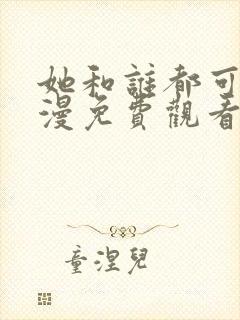 她和誰都可
漫免費觀看
童涅兒